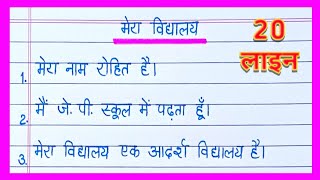 मेरा विद्यालय
20
लाइन
1. मेरा नाम रोहित है।
2. मैं जे. पी. स्कूल में पढ़ता हूँ।
3. मेरा विद्यालय एक आदर्श विद्यालय है।